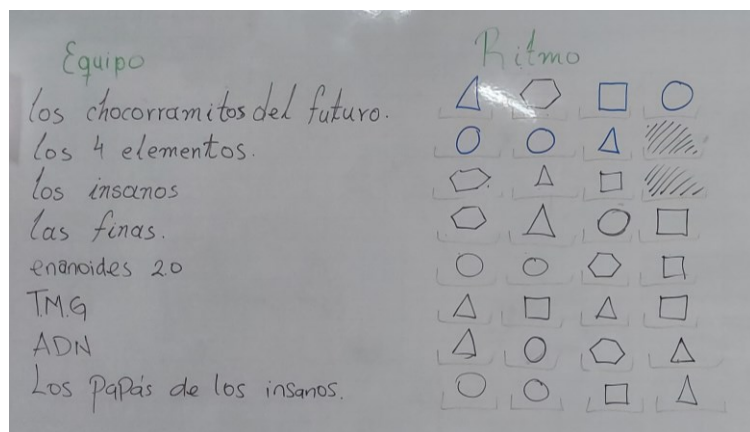 Equipo Ritmo
los chocorramitos del futuro.
los 4 elementos.
los insanos
las finas.
enanoides 2.0
T.M.G
ADN
Los papás de los insanos.